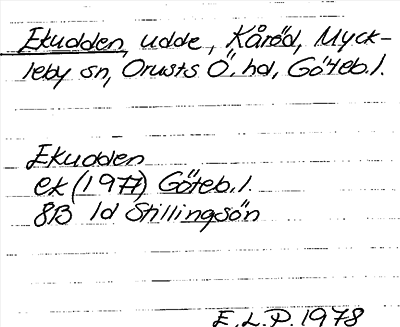 Ekudden, udde, Kåröd, Myck-
leby sn, Orusts Ö. hd, Göteb. l.
Ekudden
ek (1977) Göteb. l.
8B 1d Stillingsön
E. L. P. 1978